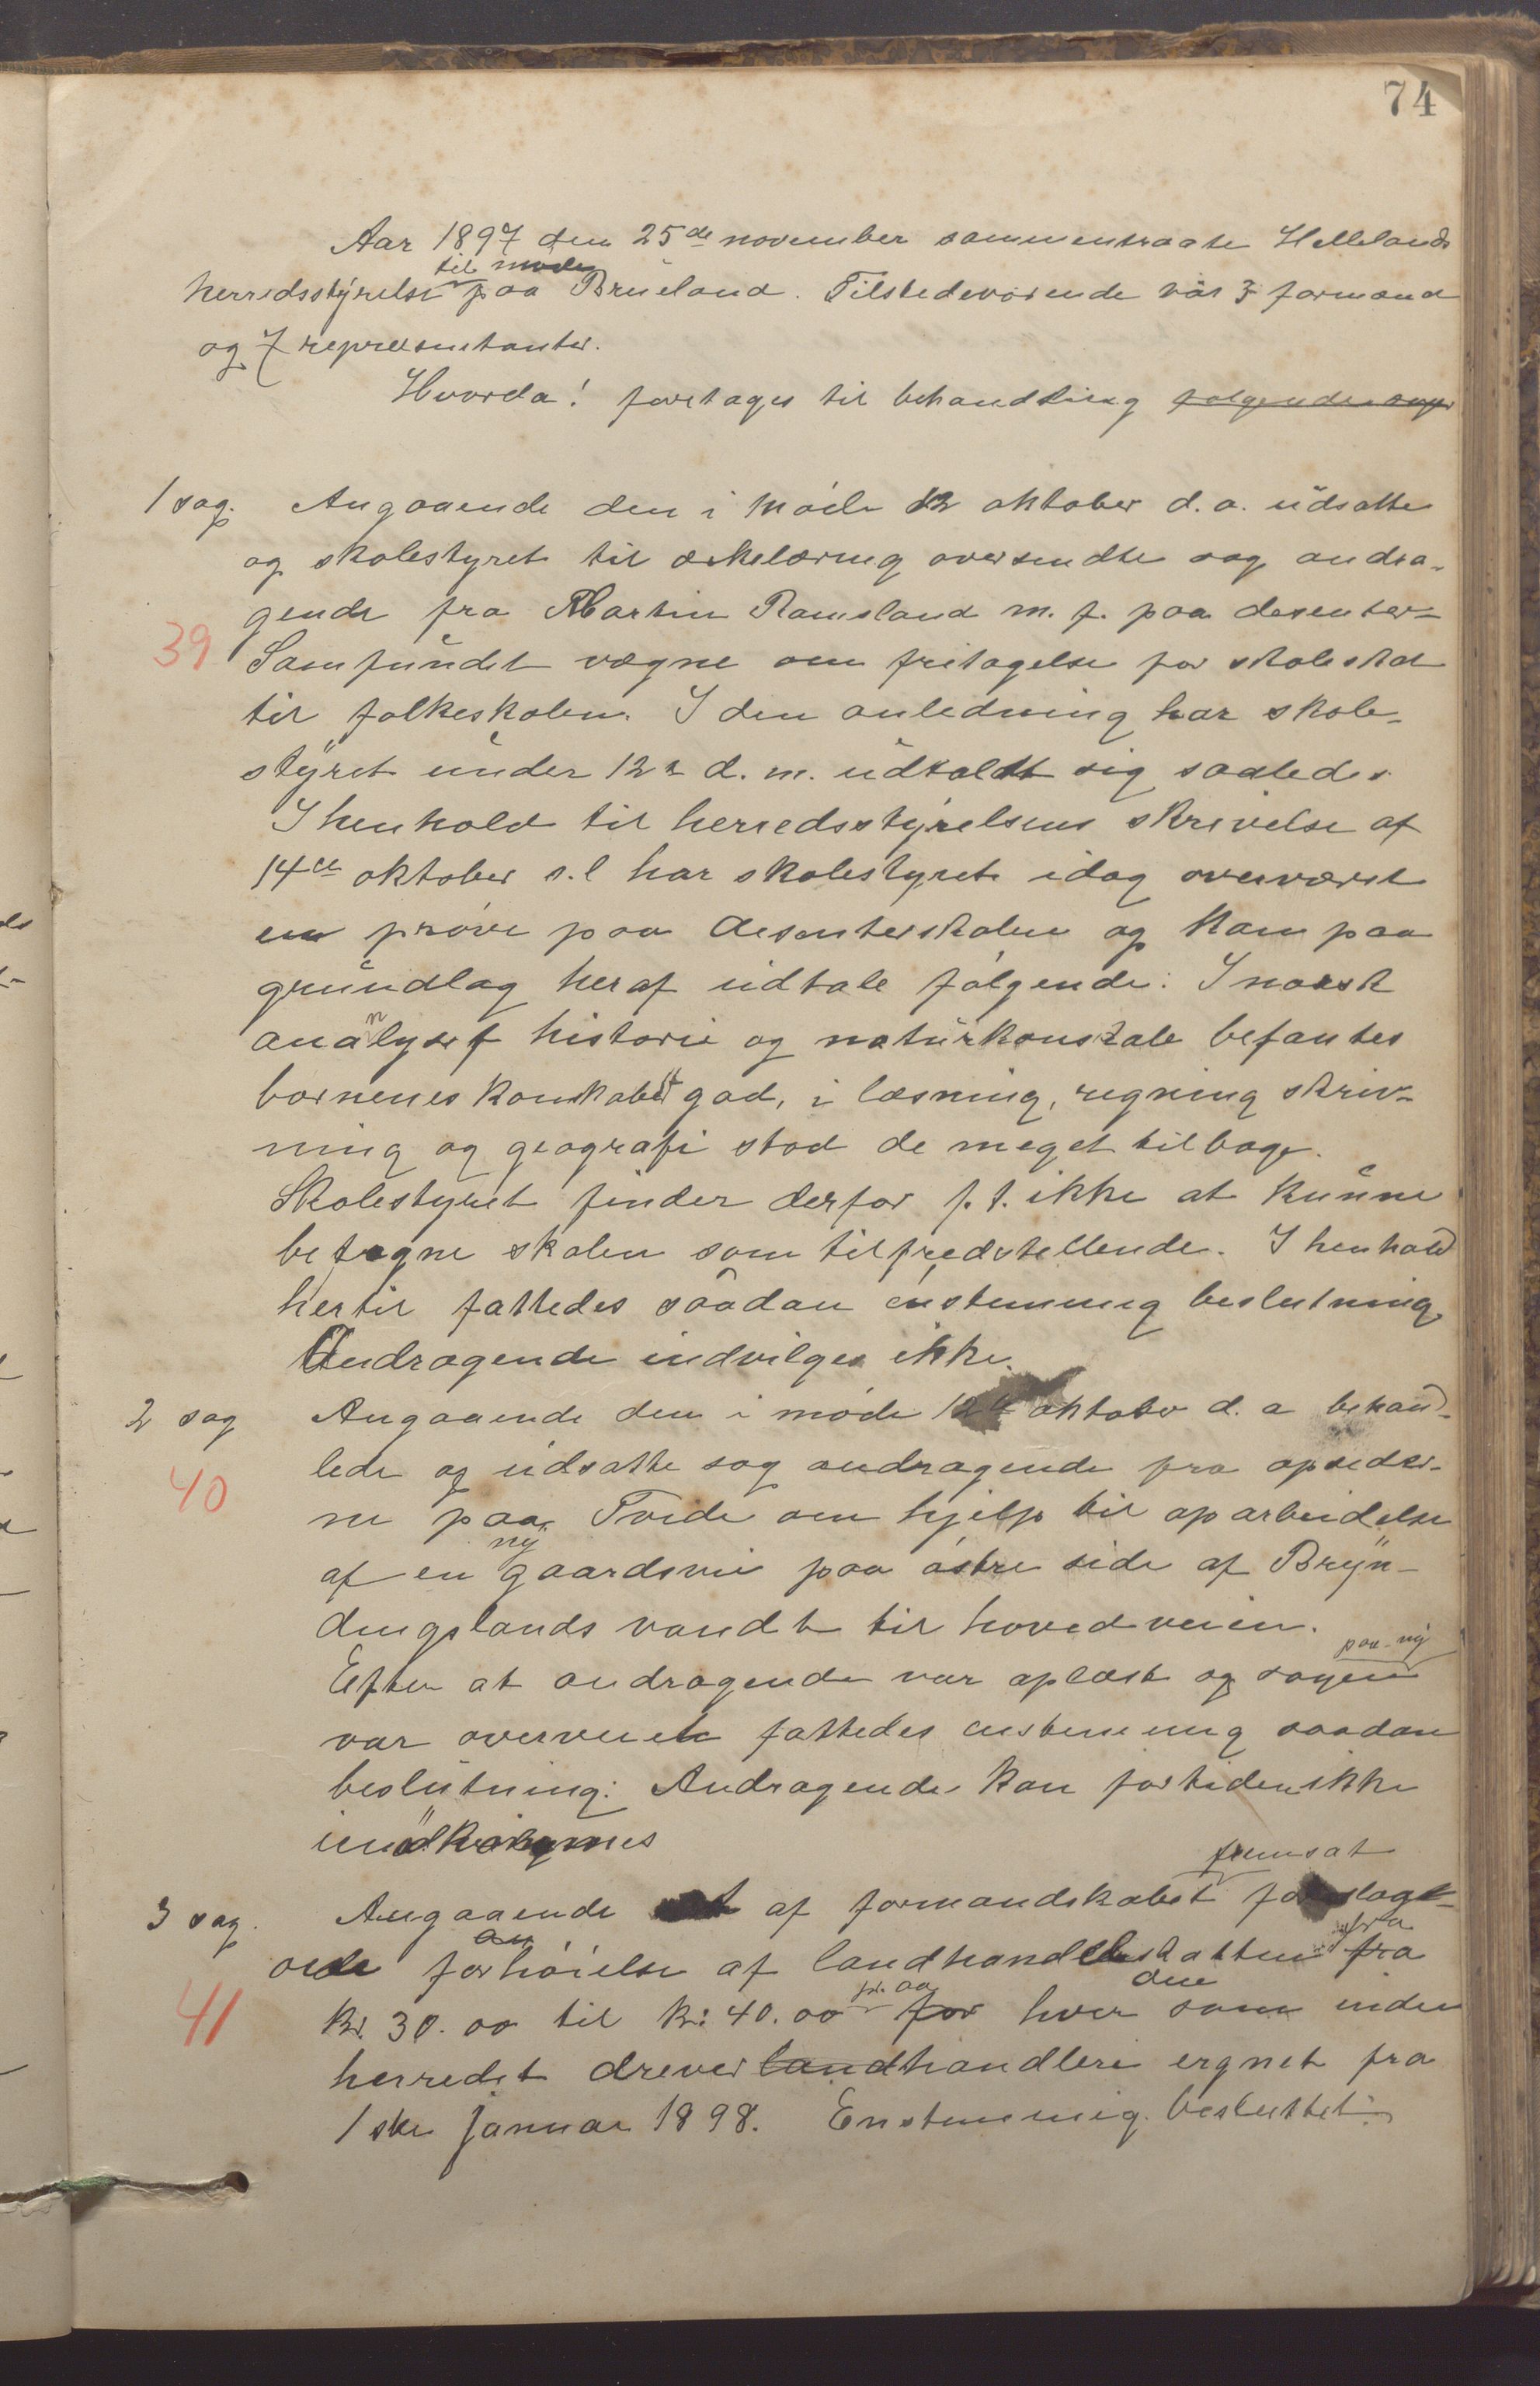 74
Aar 1897 den 25de november sammentraate Hellelands
til møde
herredsstyrelse paa Brueland. Tilstedeværende var 3 formænd
og 7 repræsentanter.
Hvorda! foretages til behandling følgende sager
1 sag. Angaaende den i møde 12 oktober d.a. udsatte
og skolestyret til erkelæring oversendte sag andra-
gende fra Martin Ramsland m. f. paa desenter-
39 Samfundet vægne om fritagelse for skoleskat
til folkeskolen. I den anledning har skole-
styret under 12 d. m. udtaldt sig saaledes
I henhold til herredsstyrelsens skrivelse af
14de oktober s.l har skolestyret idag overværet
en prøve paa desenterskolen og kan paa
grundlag heraf udtale følgende: I norsk
analyse historie og naturkonskab befantes
børnenes konskaber god, i læsning, regning skriv-
ning og geografi stod de meget tilbage.
Skolestyret finder derfor f. t. ikke at kunne
betegne skolen som tilfredstellende. I henhold
hertil fattedes saadan enstemmig beslutning
Andragende indvilges ikke.
2 sag Angaaende den i møde 12te oktober d. a behand-
40 lede og udsatte sag andragende fra opsidder-
ne paa Tveide om hjelp til oparbeidelse
ny
af en gaardsvei paa østre side af Bryn-
dingslands vandt til hovedveien.
paa ny
Efter at andragende var oplæst og sagen
var overveiet fattedes enstemmig saadan
beslutning: Andragende kan for tiden ikke
fremsat
3 sag. Angaaende af formandskabet forslag
om fra
forhøielse af landhandelskatten fra
paa den
41 Kr. 30.00 til Kr: 40.00 for hver som inden
herredet drever landhandleri ergnet fra
1ste januar 1898. Enstemmig besluttet: